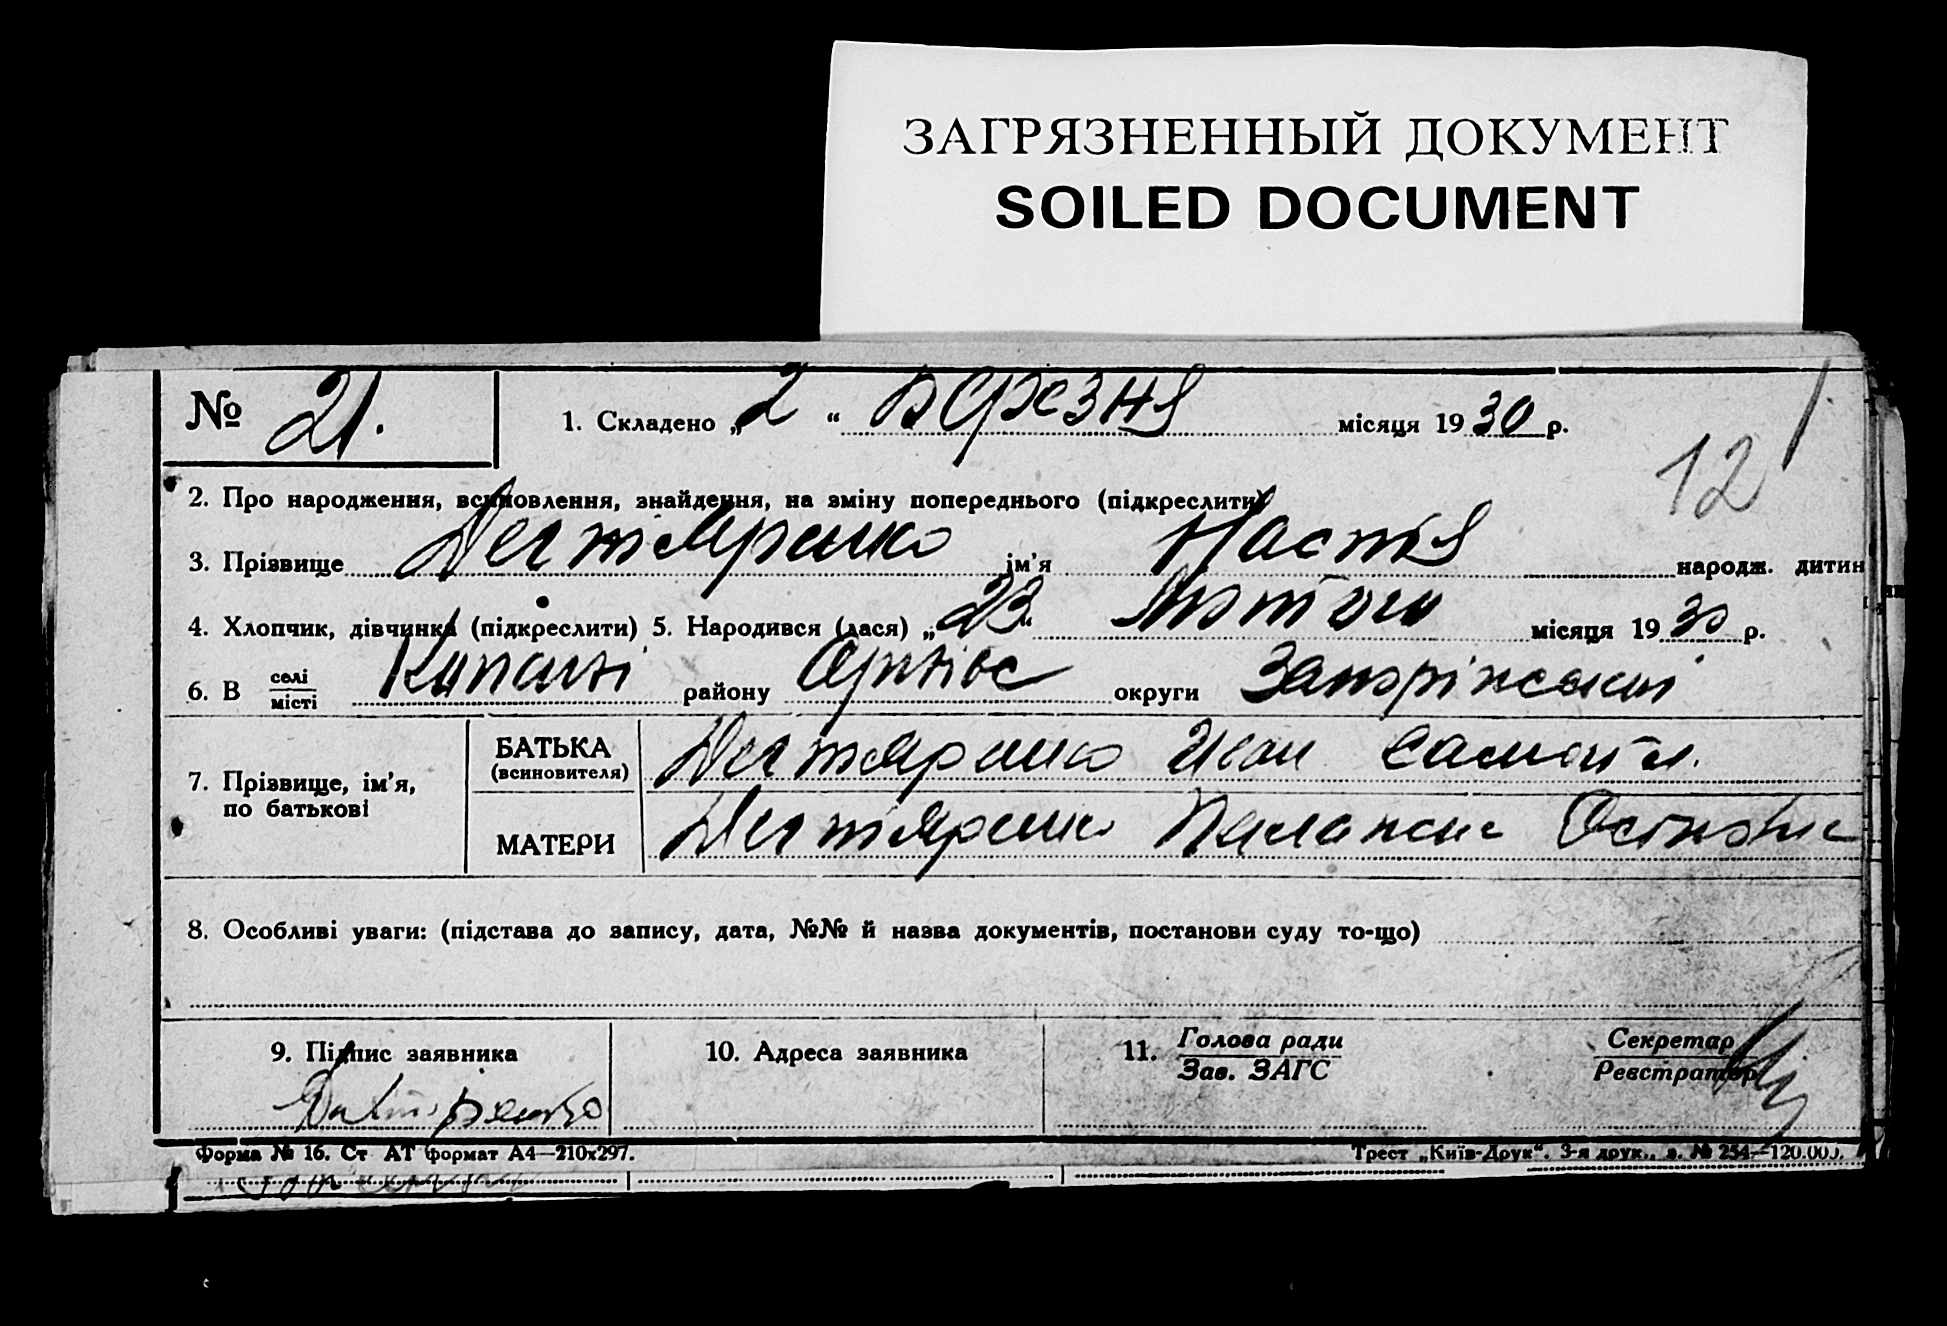 ЗАГРЯЗНЕННЫЙ ДОКУМЕНТ
SOILED DOCUMENT
№ 21.
1. Складено „2“ Березня місяця 1930 р.
12
2. Про народження, всиновлення, знайдення, на зміну попереднього (підкреслити)
3. Прізвище Дегтяренко ім'я Настя народж. дитин
4. Хлопчик, дівчинка (підкреслити) 5. Народився (лася) „23 Лютого місяця 1930 р.
6. В селі/місті Копані району округи Запоріжської
7. Прізвище, ім'я, по батькові
БАТЬКА (всиновителя) Дегтяренко Иван Самойл.
МАТЕРИ Дегтяренко
8. Особливі уваги: (підстава до запису, дата, №№ й назва документів, постанови суду то-що)
9. Підпис заявника
10. Адреса заявника
11. Голова ради/Зав. ЗАГС
Секретар/Реєстратор
Форма № 16. Ст АТ формат А4—210х297.
Трест „Київ-Друк“. 3-я друк., з. № 254—120.000.